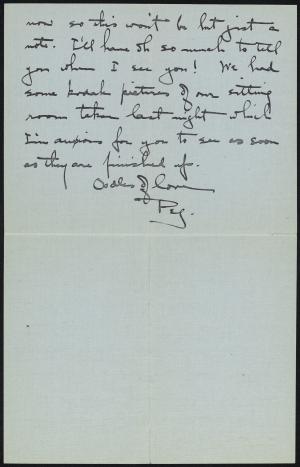 now so this won't be but just a
note. I'll have oh so much to tell
you when I see you! We had
some kodak pictures of our sitting
room taken last night which
I'm anxious for you to see as soon
as they are finished up.
Oodles of love
Peg.